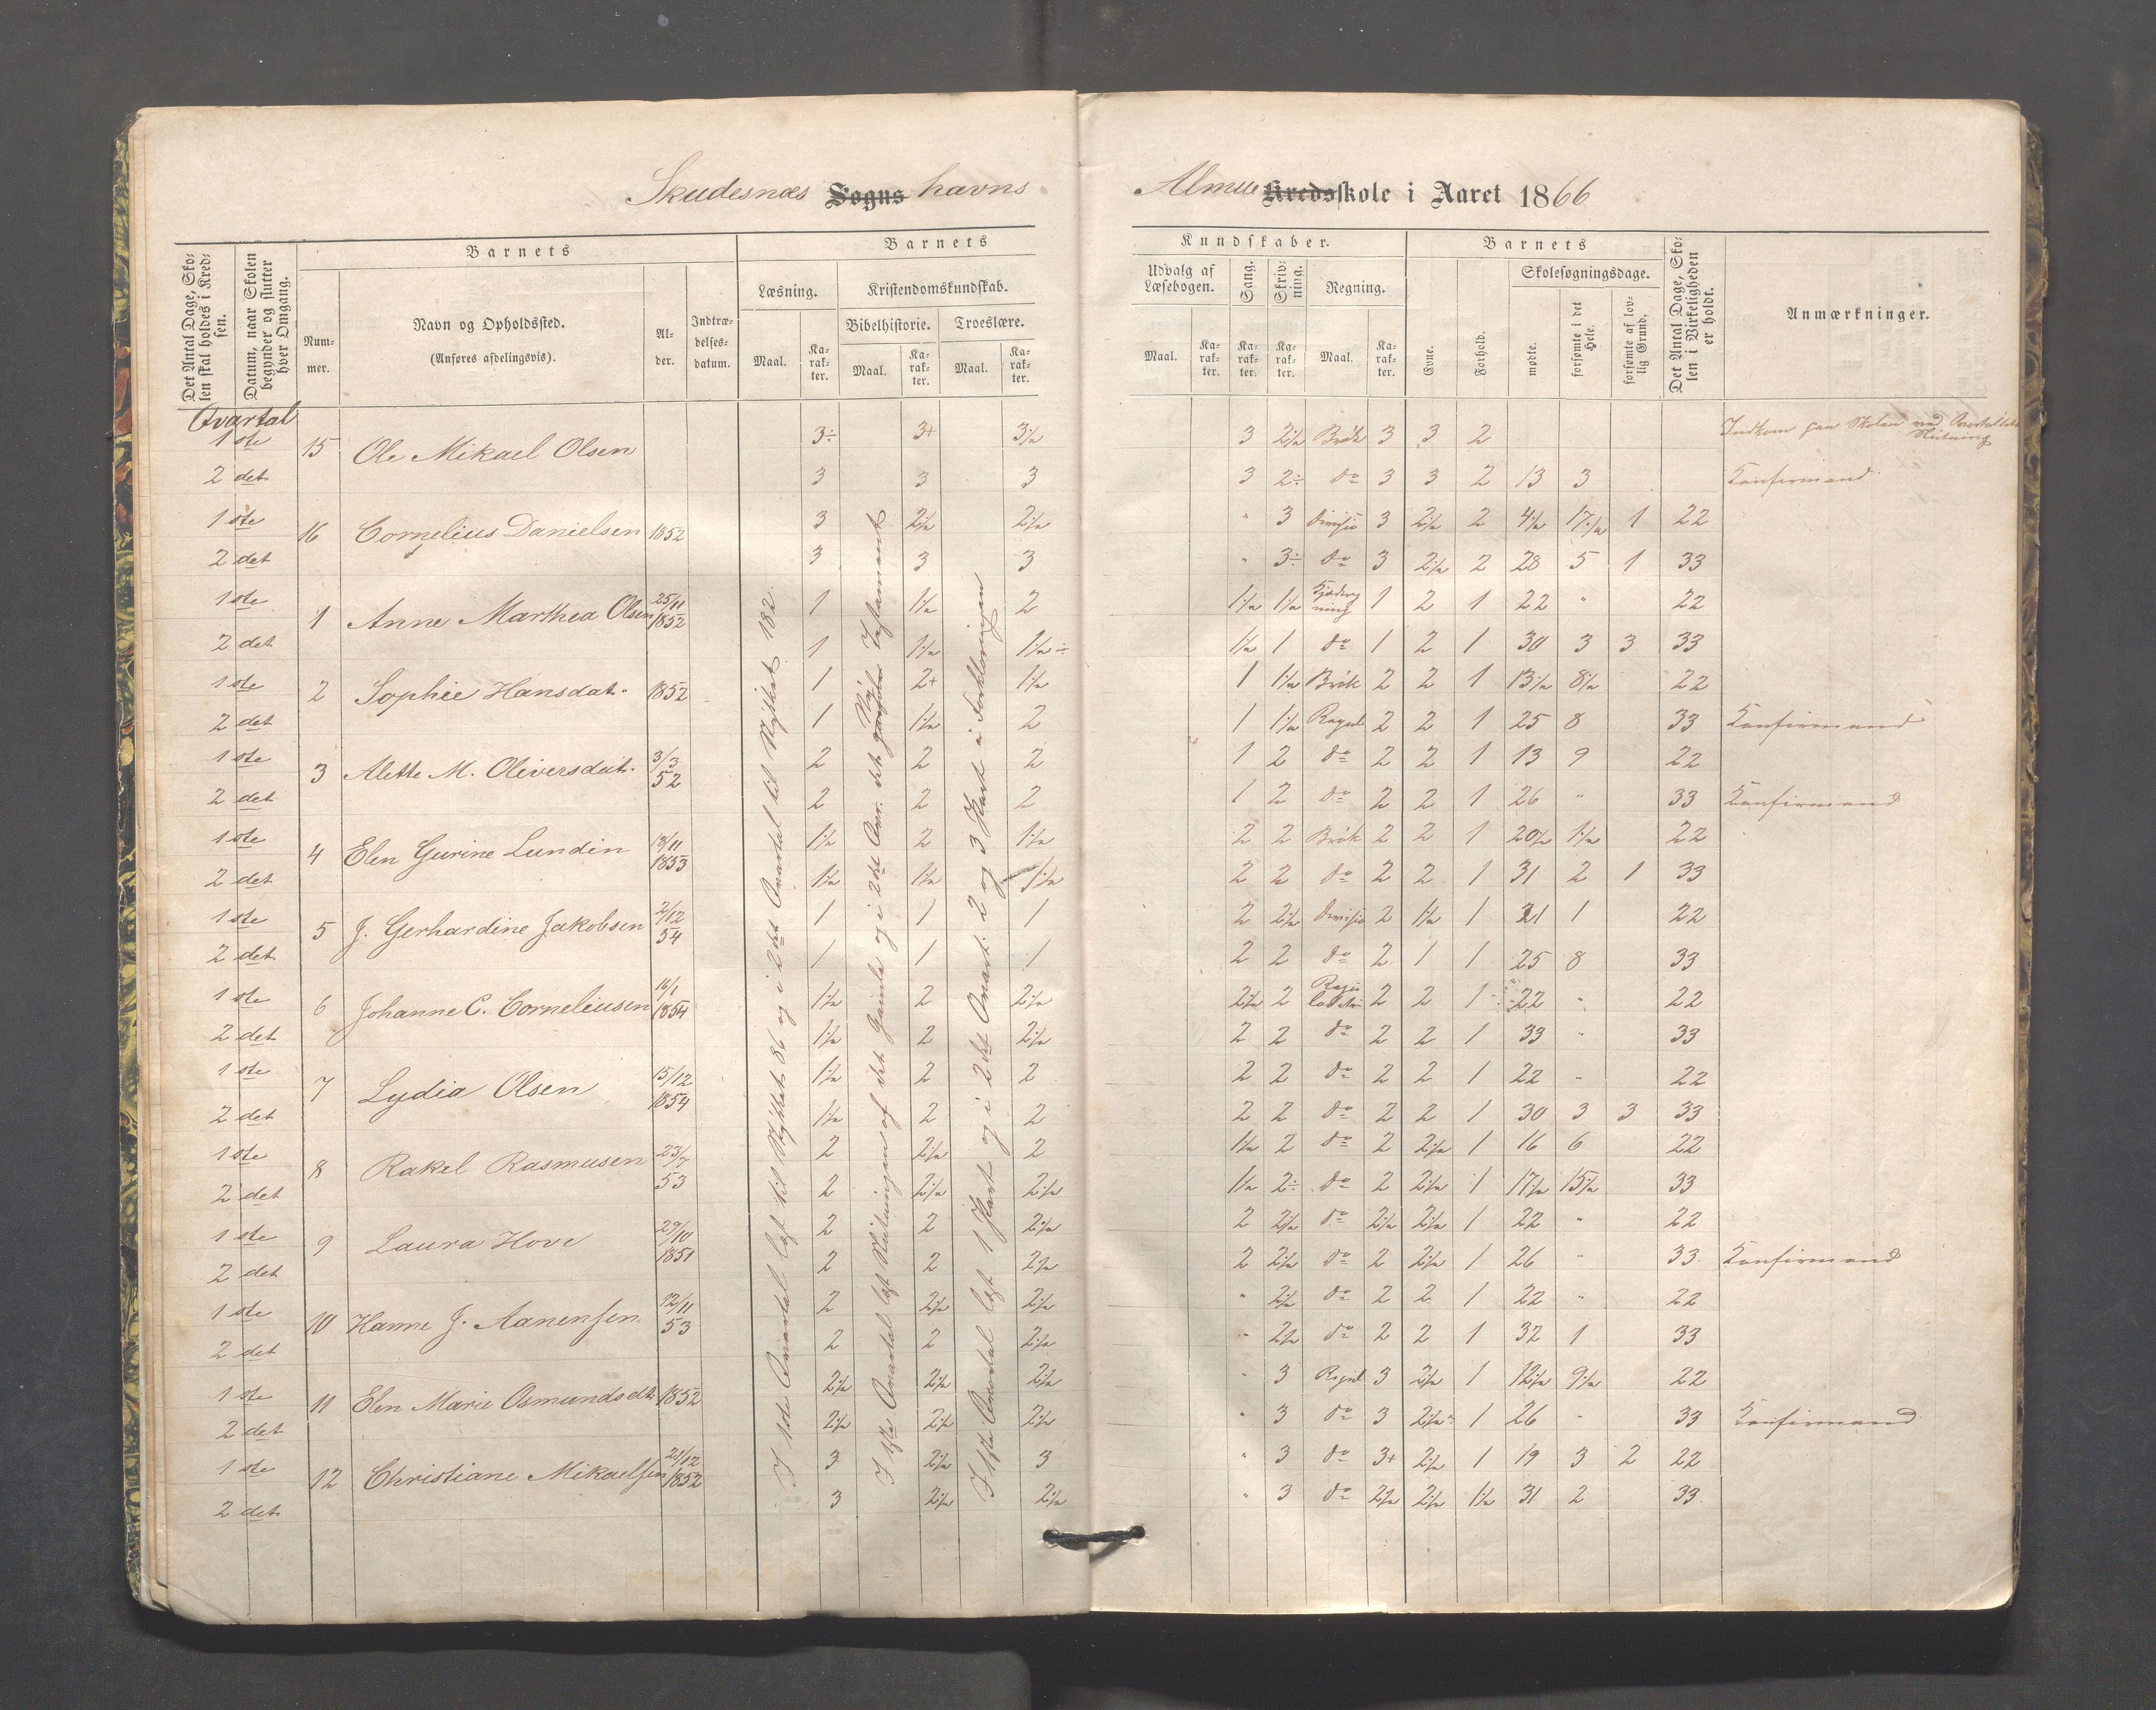 Skudesnæs Sogns havns
Almue Kredsskole i Aaret 1866
Det Antal Dage, Skolen skal holdes i Kredsen.
Datum, naar Skolen begynder og slutter hver Omgang.
Barnets
Nummer.
Navn og Opholdssted.
(Anføres afdelingsvis).
Alder.
Indtrædelsesdatum.
Barnets
Læsning.
Maal.
Karakter.
Kristendomskundskab.
Bibelhistorie.
Maal.
Karakter.
Troeslære.
Maal.
Karakter.
Kundskaber.
Udvalg af Læsebogen.
Maal.
Karakter.
Sang.
Karakter.
Skrivning.
Karakter.
Regning.
Maal.
Karakter.
Barnets
Evne.
Forhold.
Skolesøgningsdage.
mødte.
forsømte i det Hele.
forsømte af lovlig Grund.
Det Antal Dage, Skolen i Virkeligheden er holdt.
Anmærkninger.
Qvartal
1ste 15 Ole Mikael Olsen 3÷ 3+ 3½ 3 2½ Brøk 3 3 2 Indkom paa Skolen ved Qvartallets Slutning
2det 3 3 3 3 2÷ do 3 3 2 13 3 Konfirmand
1ste 16 Cornelius Danielsen 1852 3 2½ 2½ " 3 Divisio 3 2½ 2 4½ 17½ 1 22
2det 3 3 3 " 3÷ do 3 2½ 2 28 5 1 33
1ste 1 Anne Marthea Olsen 25/11 1852 1 1½ 2 1½ 1½ 1 2 1 22 " 22
2det 1 1½ 1½÷ 1½ 1 do 1 2 1 30 3 3 33
1ste 2 Sophie Hansdat. 1852 1 2+ 1½ 1 1½ Brøk 2 2 1 13½ 8½ 22
2det 1 1½ 2 1 1½ Regul 2 2 1 25 8 33 Konfirmand
1ste 3 Alette M. Oliversdat. 3/3 52 2 2 2 1 2 do 2 2 1 13 9 22
2det 2 2 2 1 2 do 2 2 1 26 " 33 Konfirmand
1ste 4 Elen Gurine Lundin 13/11 1853 1½ 2 1½ 2 2 Brøk 2 2 1 20½ 1½ 22
2det 1½ 1½ 1½ 2 2 do 2 2 1 31 2 1 33
1ste 5 J. Gerhardine Jakobsen 2/12 54 1 1 1 2 2½ Divisio 2 1½ 1 21 1 22
2det 1 1 1 2 2 do 2 1 1 25 8 33
1ste 6 Johanne C. Corneliusen 16/1 1854 1½ 2 2½ 2½ 2 2 2 1 22 " 22
2det 1½ 2 2½ 2 2 do 2 2 1 33 " 33
1ste 7 Lydia Olsen 15/12 1854 1½ 2 2 2 2 do 2 2 1 22 " 22
2det 1½ 2 2 2 2 do 2 2 1 30 3 3 33
1ste 8 Rakel Rasmusen 23/7 53 2 2½ 2 1½ 2 do 2 2½ 1 16 6 22
2det 2 2½ 2½ 1½ 2÷ do 2 2½ 1 17½ 15½ 33
1ste 9 Laura Hove 29/10 1851 2 2 2½ 2 2½ do 2½ 2½ 1 22 " 22
2det 2 2 2½ 2 2½ do 2 2½ 1 26 " 33. Konfirmand
1ste 10 Hanne J. Aanensen 12/11 53 2 2½ 2½ " 2½ do 2 2 1 22 " 22
2det 2 2 2½ " 2½ do 2 2 1 32 1 33
1ste 11 Elen Marie Osmundsdt. 1852 2½ 2½ 2½ " 3 Regul 3 2½ 1 12½ 9½ 22
2det 2½ 2½ 2½ " 3 do 3 2½ 1 26 " 33 Konfirmand
1ste 12 Christiane Mikaelsen 21/12 1852 3 2½ 3 " 3 do 3+ 2½ 1 19 3 2 22
2det 3 2½ 2½ " 3 do 2½ 2½ 1½ 31 2 33.
I 1ste Qvartal læst til Stykket 86 og i 2det Qvartal til Stykket 182.
I 1ste Qvartal læst Slutningen af det Gamle og i 2det Qvar. det Ny Testamente
I 1ste Qvartal læst 1 Part og i 2det Qvart. 2 og 3 Part a Forklaringen